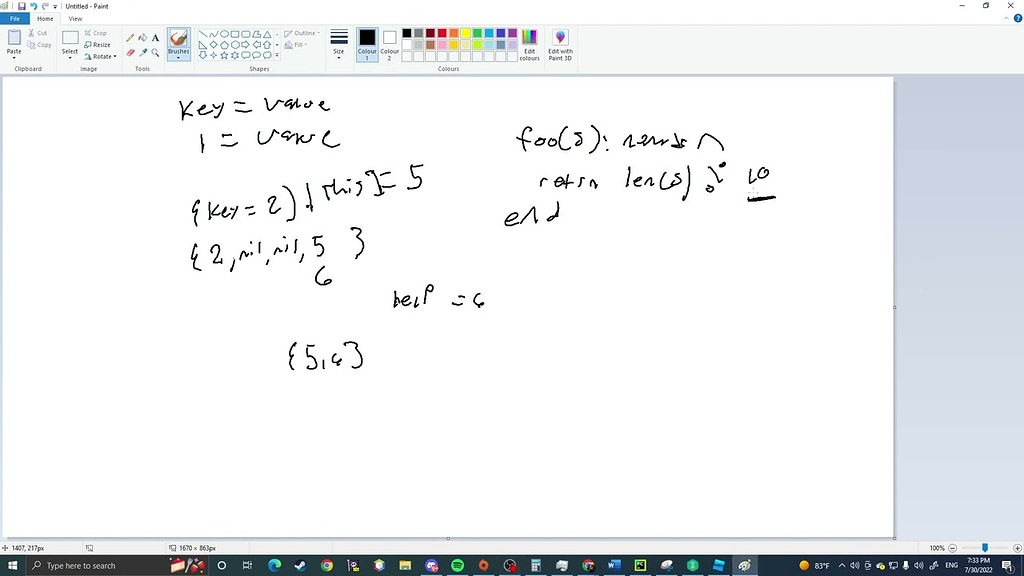 Untitled - Paint
File Home View
Paste
Cut
Copy
Clipboard
Select
Crop
Resize
Rotate
Image
Tools
Brushes
Shapes
Outline
Fill
Size
Colour 1
Colour 2
Colours
Edit colours
Edit with Paint 3D
Key = value
1 = value
{key = 2}["this"] = 5
{2, nil, nil, 5 }
6
help = 6
{5, 6}
foo(s):
return len(s) % 10
end
1407, 217px
1670 × 863px
100%
Type here to search
83°F
ENG
7:33 PM
7/30/2022